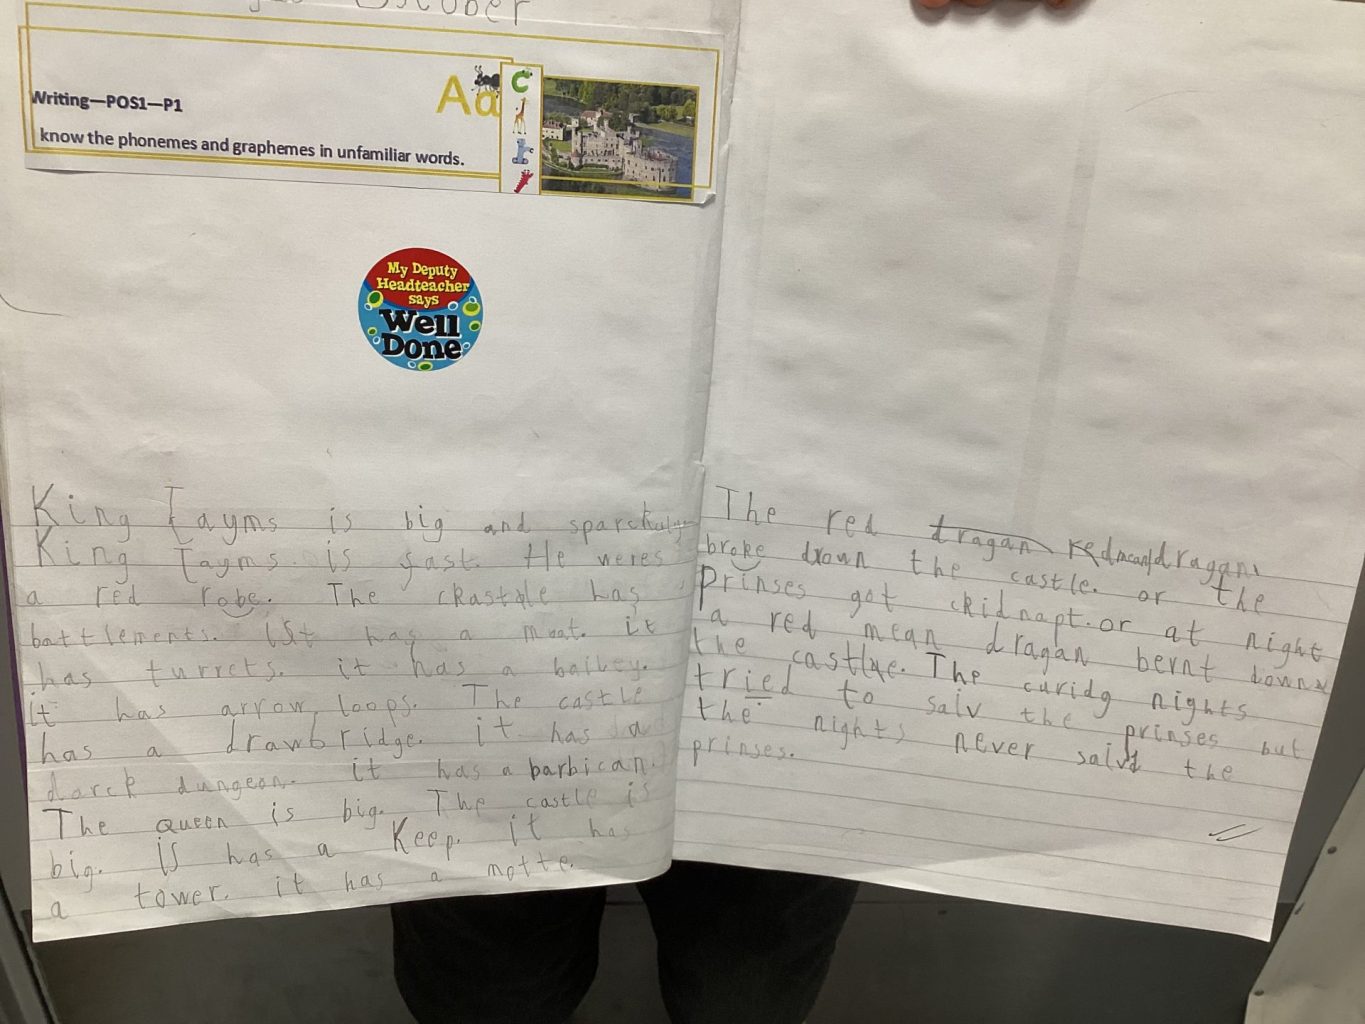 October
Writing—POS1—P1
know the phonemes and graphemes in unfamiliar words.
Aa
My Deputy
Headteacher
says
Well
Done
King Tayms is big and
King Tayms. is fast. He weres
a red robe. The has
battlements. has a moat. it
has turrets. it has a bailey.
it has arrow loops. The castle
has a drawbridge. it has a
darck dungeon. it has a barbican.
The queen is big. The castle is
big. is has a Keep. it has
a tower. it has a motte.
The red dragan
broke down the castle. or the
prinses got ckidnapt. or at night
a red mean dragan bernt down
the castle. The curidg nights
tried to salv the prinses but
the nights never the
prinses.